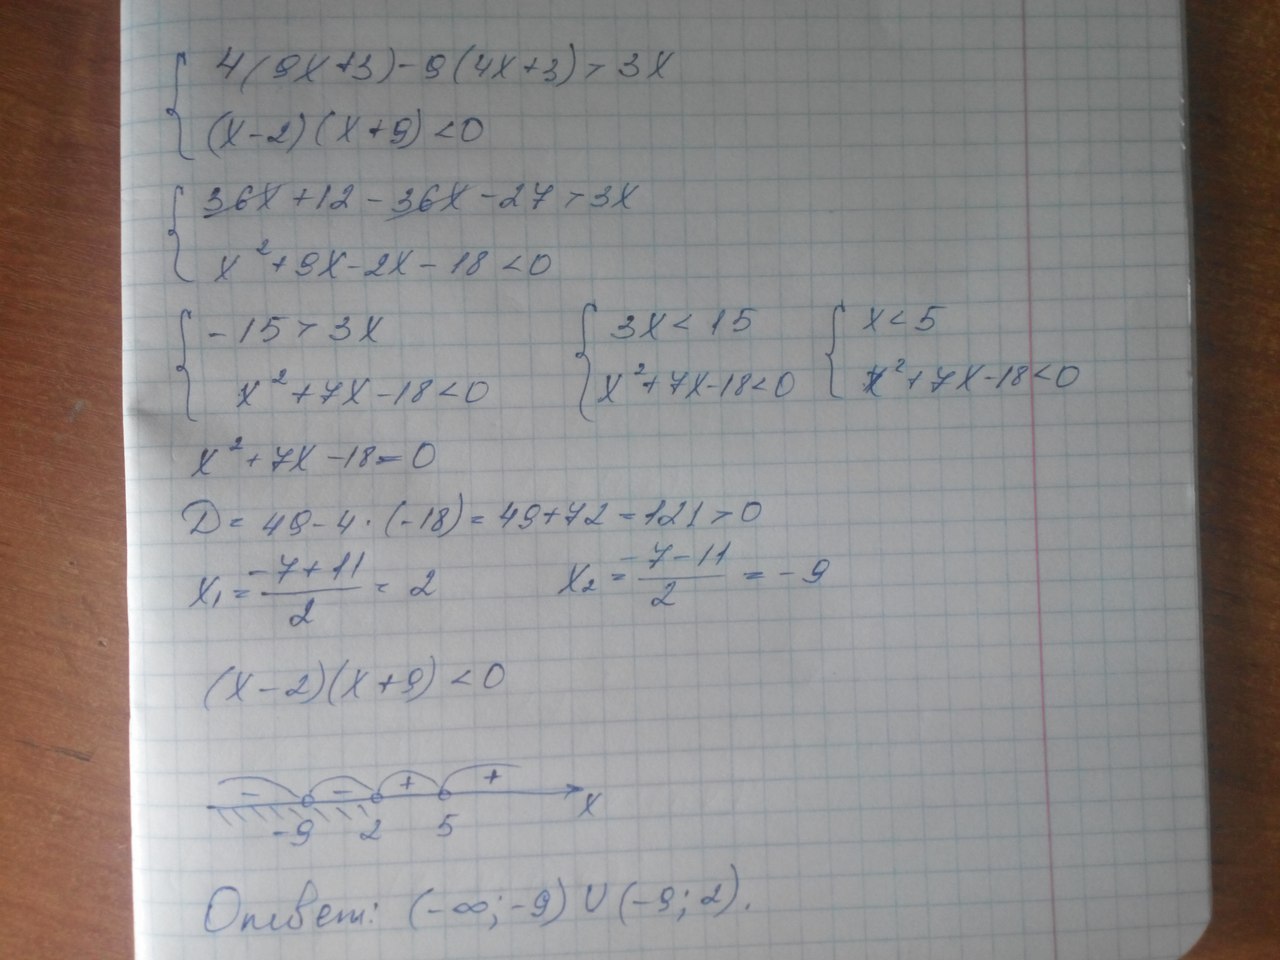 { 4(9x+3)-9(4x+3)>3x
(x-2)(x+9)<0
{ 36x+12-36x-27>3x
x²+9x-2x-18<0
{ -15>3x { 3x<15 { x<5
x²+7x-18<0 x²+7x-18<0 x²+7x-18<0
x²+7x-18=0
D=49-4·(-18)=49+72=121>0
x₁=(-7+11)/2=2 x₂=(-7-11)/2=-9
(x-2)(x+9)<0
- - + +
-9 2 5 x
Ответ: (-∞;-9)∪(-9;2).